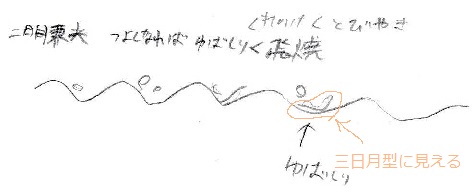 くわのは く とびやき
つよくなれば ゆばしり く 飛焼
三日月型に見える
ゆばしり